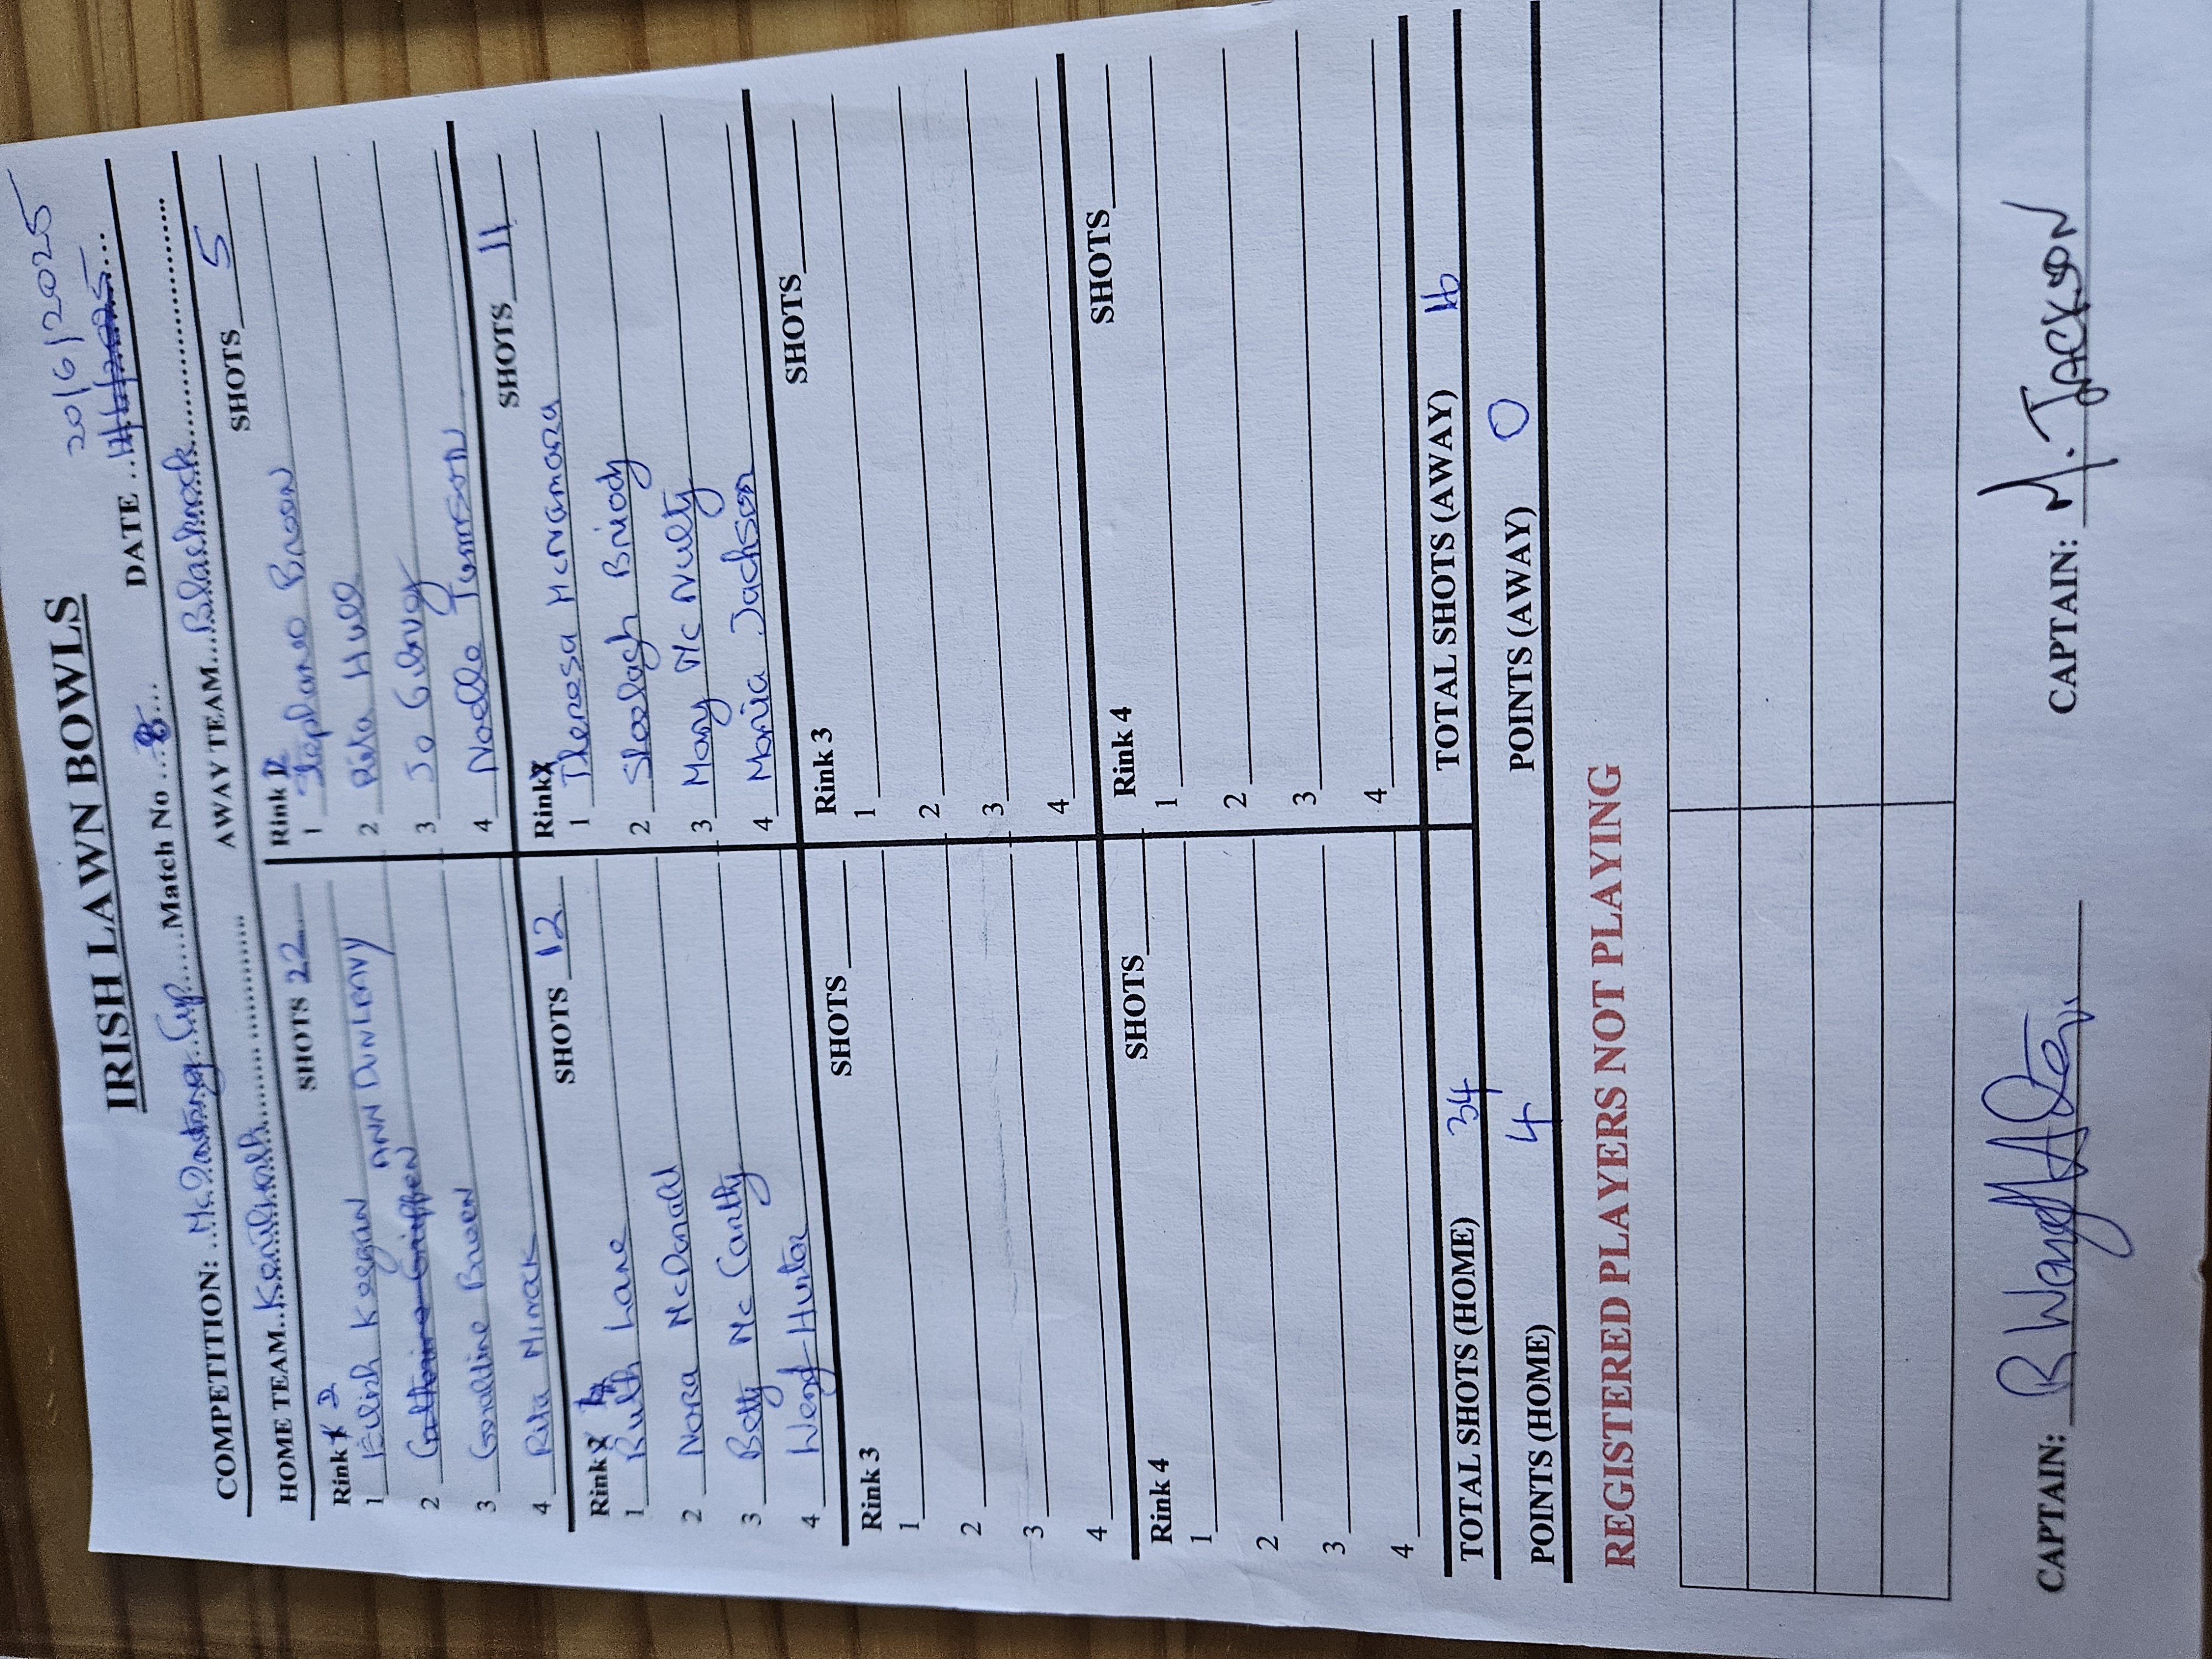 IRISH LAWN BOWLS
20/6/2025
COMPETITION: ...McDatang..Cup.....Match No ...8... DATE ..
HOME TEAM..Kenilworth................ AWAY TEAM...Blackrock..............................
SHOTS 22 SHOTS 5
Rink 2 Rink 2
1 Eilish Keegan 1 Stephanie Brown
ANN DUNLEAVY
2 Catherine Griffen 2 Rita Hull
3 Geraldine Breen 3 Jo Gilvey
4 Rita Mirrak 4 Noelle Tomson
SHOTS 12 SHOTS 11
Rink Rink
1 Ruth Lane 1 Theresa McNamara
2 Nora McDonald 2 Sheelagh Briody
3 Betty Mc Carthy 3 Mary Mc Nulty
4 Wendy Hunter 4 Maria Jackson
SHOTS SHOTS
Rink 3 Rink 3
1 1
2 2
3 3
4 4
SHOTS SHOTS
Rink 4 Rink 4
1 1
2 2
3 3
4 4
TOTAL SHOTS (HOME) 34 TOTAL SHOTS (AWAY) 16
POINTS (HOME) 4 POINTS (AWAY) 0
REGISTERED PLAYERS NOT PLAYING
CAPTAIN: CAPTAIN: M. JACKSON